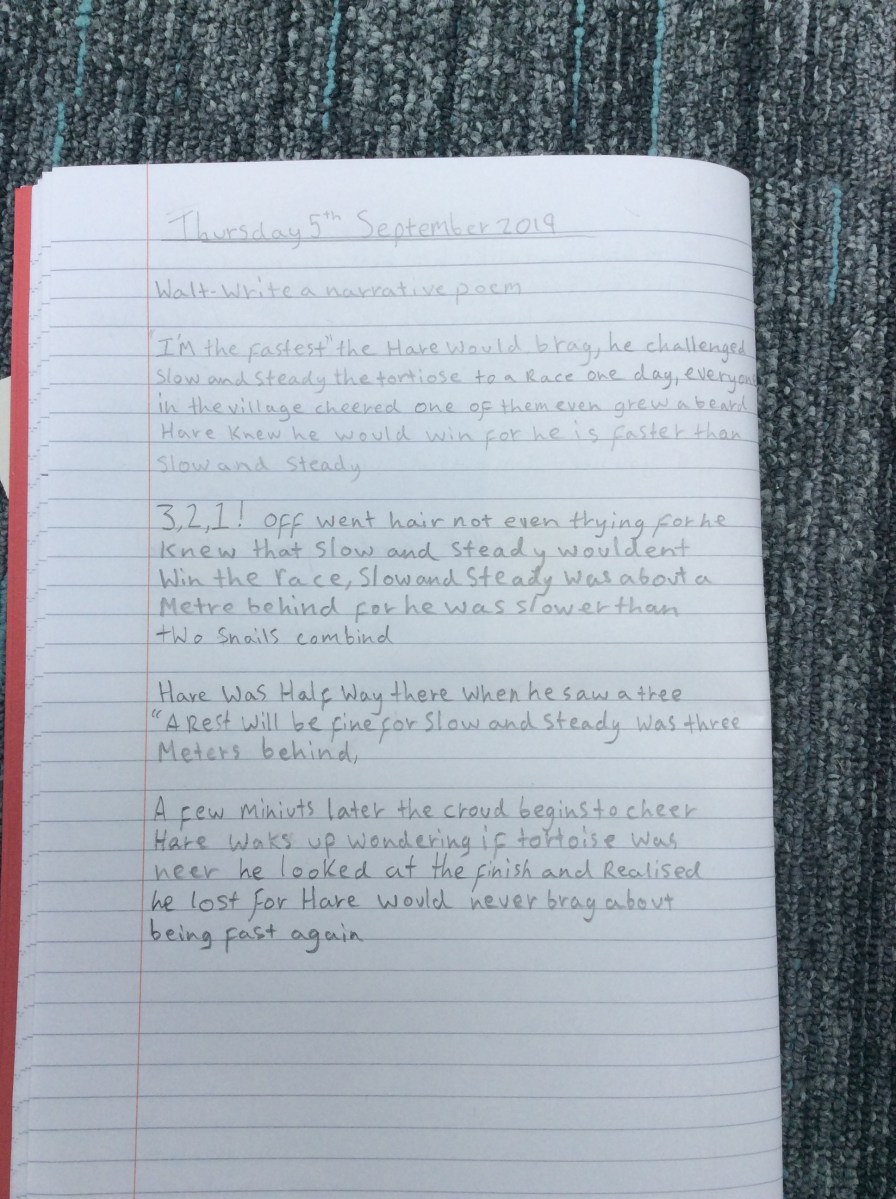 Thursday 5th September 2019
Walt-Write a narrative poem
"I'M the fastest" the Hare would brag, he challenged
Slow and Steady the tortiose to a Race one day, everyone
in the village cheered one of them even grew a beard
Hare Knew he would win for he is faster than
Slow and Steady
3,2,1! Off went hair not even trying for he
Knew that Slow and Steady wouldent
Win the race, Slow and Steady was about a
Metre behind for he was slower than
two Snails combind
Hare Was Half Way there when he saw a tree
"A Rest Will be fine for Slow and Steady was three
Meters behind,
A few miniuts later the croud begins to cheer
Hare waks up wondering if tortoise was
neer he looked at the finish and Realised
he lost for Hare would never brag about
being fast again